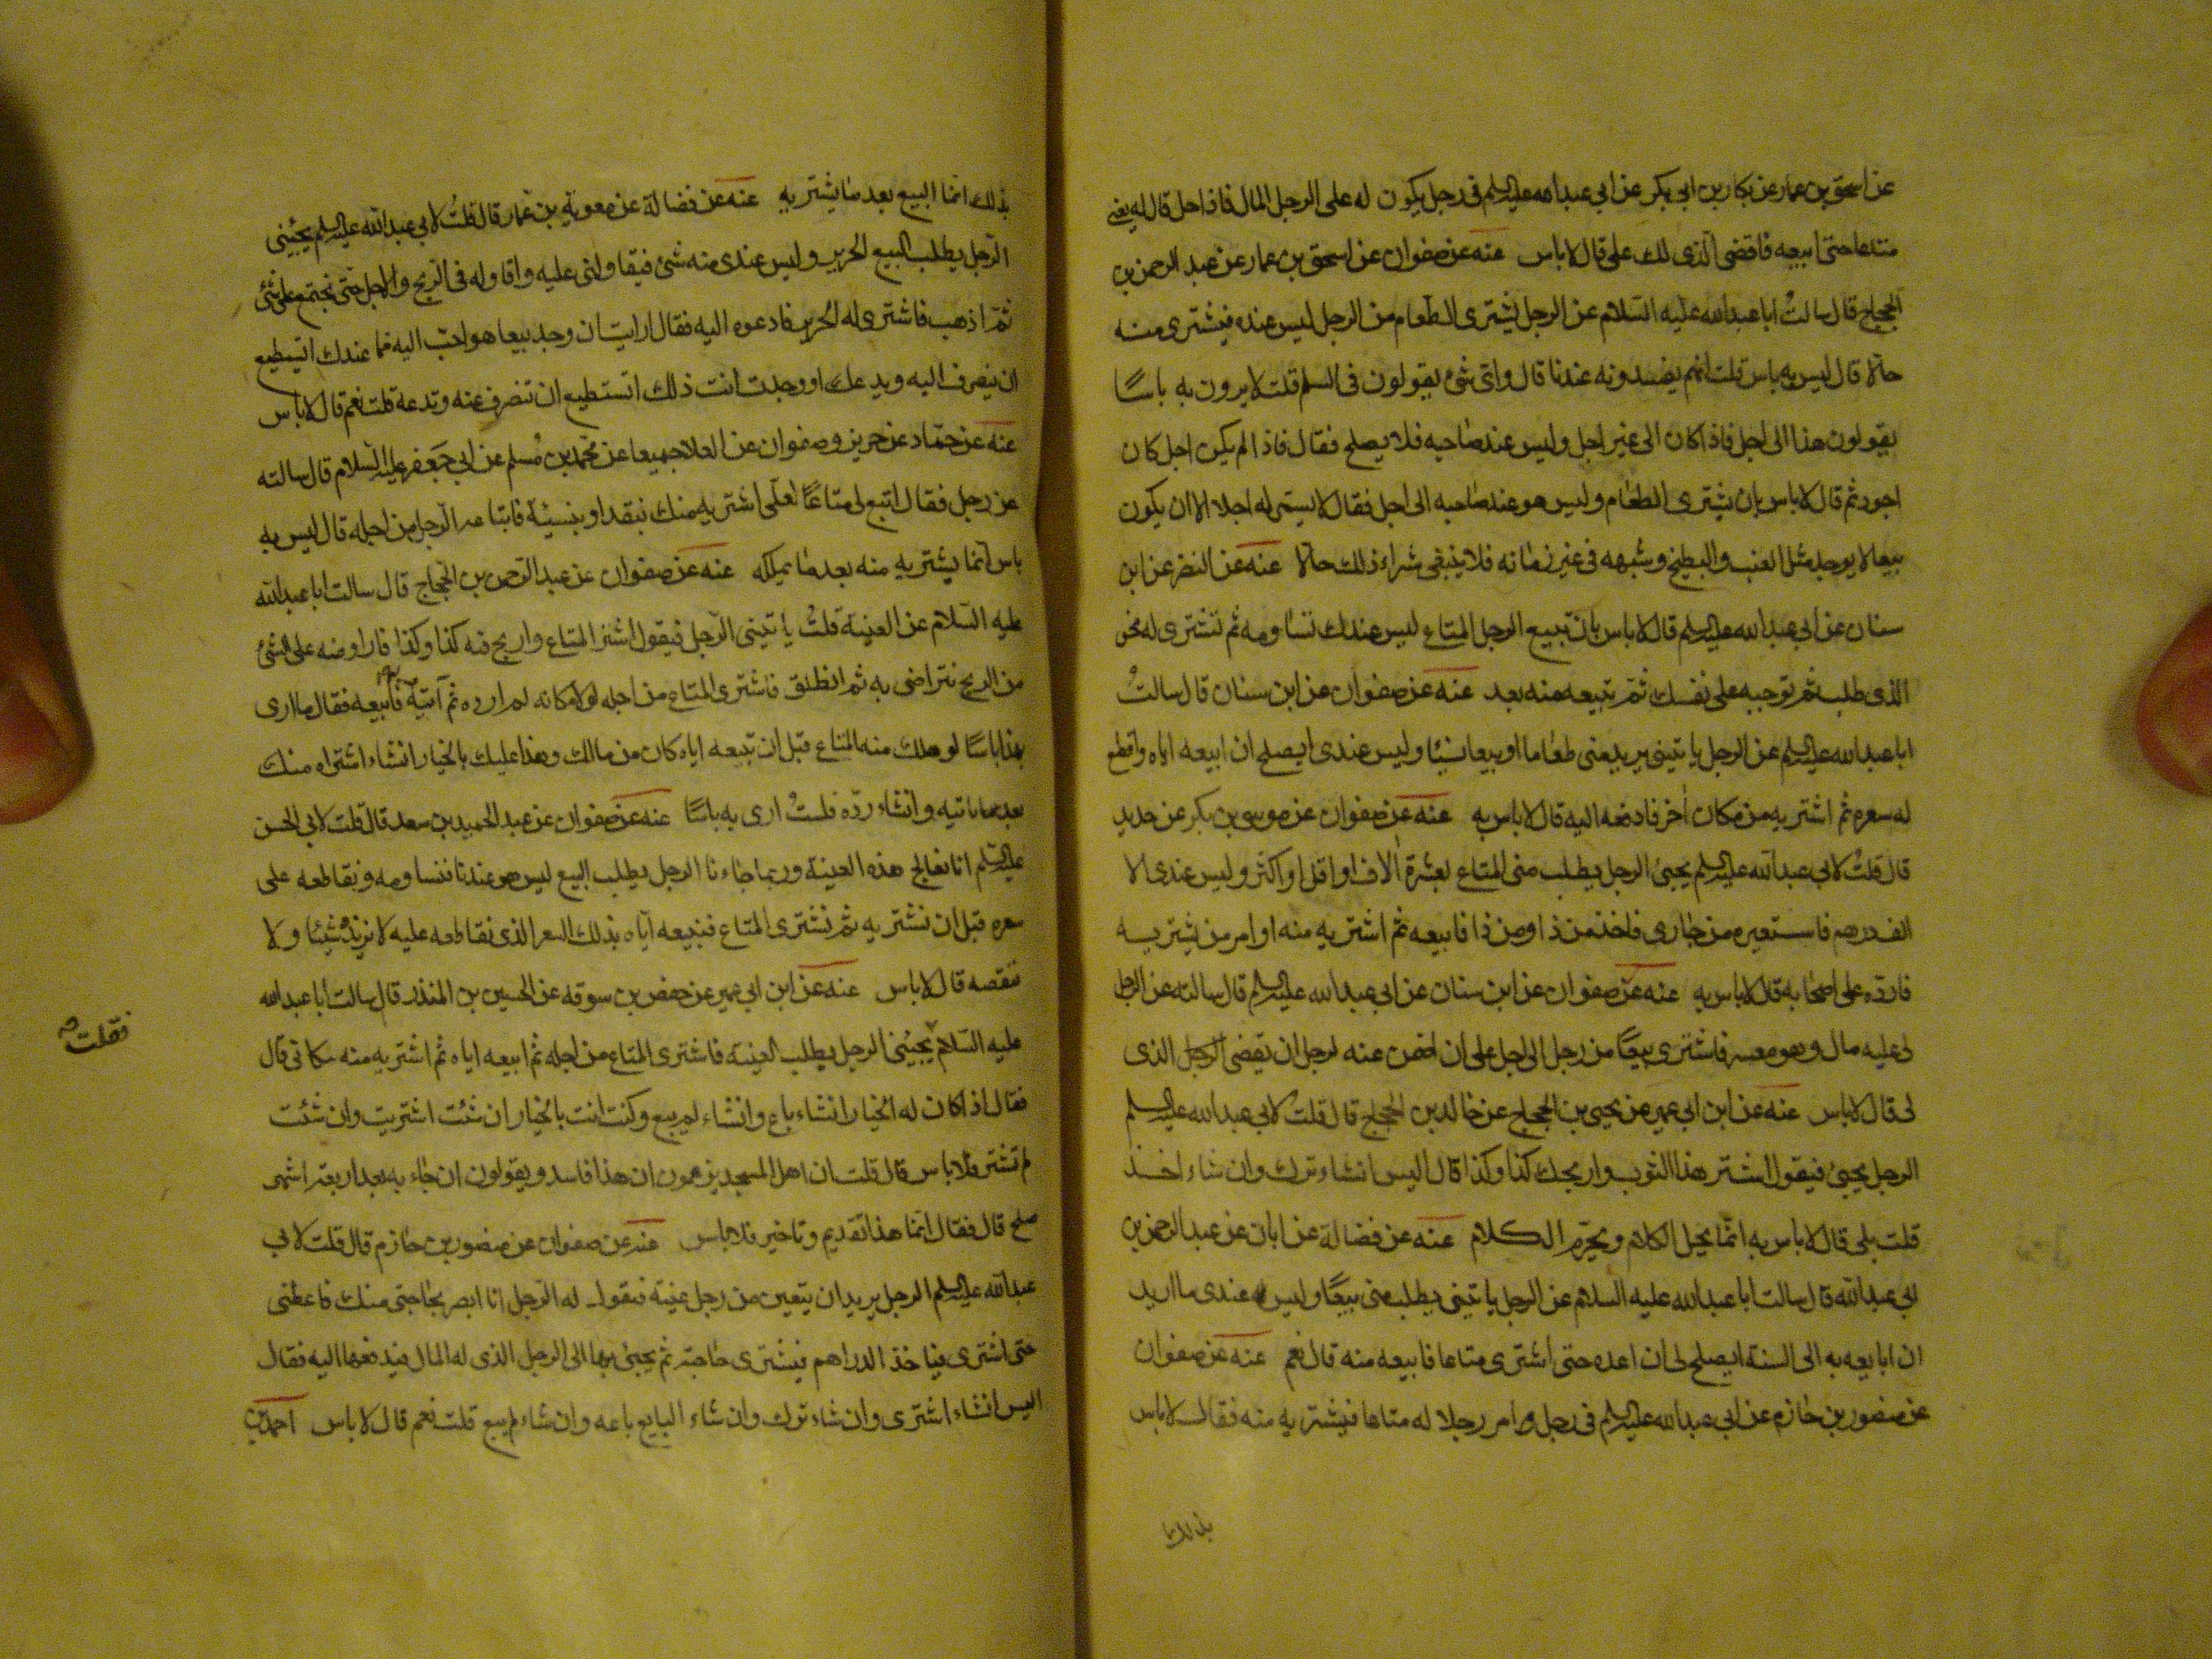 عن اسحق بن عمار عن بكار بن ابى بكر عن ابي عبد الله عليه السلم فى رجل يكون له على الرجل المال فاذا حل قال له بعنى
متاعا حتى ابيعه فاقضى الذى لك على قال لا باس عنه عن صفوان عن اسحق بن عمار عن عبد الرحمن بن
الحجاج قال سالتُ ابا عبد الله عليه السّلام عن الرجل يشترى الطّعام من الرجل ليس عنده فيشترى منه
حالّا قال ليس به باس قلت انهم يفسدونه عندنا قال واىّ شئ يقولون فى السلم قلت لا يرون به باسًا
يقولون هذا الى اجل فاذا كان الى غير اجل وليس عند صاحبه فلا يصلح فقال فاذا لم يكن اجل كان
اجود ثم قال لا باس بان يشترى الطعام وليس هو عند صاحبه الى اجل فقال لا يسمى له اجلا الا ان يكون
بيعا لا يوجد مثل العنب والبطيخ وشبهه فى غير زمانه فلا ينبغى شراء ذلك حالّا عنه عن النضر عن ابن
سنان عن ابى عبد الله عليه السلم قال لا باس بان تبيع الرجل المتاع ليس عندك تساومه ثم تشترى له نحو
الذى طلب ثم توجبه على نفسك ثمّ تبيعه منه بعد عنه عن صفوان عن ابن سنان قال سالتُ
ابا عبد الله عليه السلم عن الرجل ياتينى يريد منى طعاما او بيعا نسيئا وليس عندى ايصلح ان ابيعه اياه واقطع
له سعره ثم اشتريه من مكان اخر فادفعه اليه قال لا باس به عنه عن صفوان عن موسى بن بكر عن حديد
قال قلتُ لابى عبد الله عليه السلم يجئ الرجل يطلب منى المتاع بعشرة الاف او اقل او اكثر وليس عندى الا
الف درهم فاستعيره من جارى فاخذ من ذا ومن ذا فابيعه ثم اشتريه منه او امر من يشتريه
فارده على اصحابه قال لا باس به عنه عن صفوان عن ابن سنان عن ابى عبد الله عليه السلم قال سالته عن الرجل
لى عليه مال وهو معسر فاشترى بيعًا من رجل الى اجل على ان اضمن عنه لرجل ان يقضى الرجل الذى
لى قال لا باس عنه عن ابن ابى عمير عن يحيى بن الحجاج عن خالد بن الحجاج قال قلت لابى عبد الله عليه السلم
الرجل يجئ فيقول اشتر هذا الثوب واربحك كذا وكذا قال اليس انشاء ترك وان شاء اخذ
قلت بلى قال لا باس به انّما يحل الكلام ويحرّم الكلام عنه عن فضالة عن ابان عن عبد الرحمن بن
ابى عبد الله قال سالت ابا عبد الله عليه السلام عن الرجل ياتينى يطلب منى بيعًا وليس عندى ما اريد
ان ابايعه به الى السنة ايصلح لى ان اعده حتى اشترى متاعا فابيعه منه قال نعم عنه عن صفوان
عن منصور بن حازم عن ابى عبد الله عليه السلم فى رجل امر رجلا له متاعا فيشتريه منه فقال لا باس
بذلك انما
بذلك انّما البيع بعد ما يشتريه عنه عن فضالة عن معوية بن عمار قال قلتُ لابى عبد الله عليه السلم يجيئنى
الرّجل يطلب البيع الحرير وليس عندى منه شئ فيقاولنى عليه واقاوله فى الرّبح والاجل حتى نجتمع على شئ
ثمّ اذهب فاشترى له الحرير فادعوه اليه فقال ارايت ان وجد بيعا هو احبّ اليه مما عندك ايستطيع
ان ينصرف اليه ويدعك او وجدت انت ذلك اتستطيع ان تنصرف عنه وتدعه قلت نعم قال لا باس
عنه عن حمّاد عن حريز وصفوان عن العلا جميعا عن محمد بن مُسلم عن ابى جَعفر عليه السّلام قال سالته
عن رجل فقال اتبع لى متاعًا لعلّى اشتريه منك بنقد او بنسيئة فابتاعه الرّجل من اجله قال ليس به
باس انّما يشتريه منه بعد ما يملكه عنه عن صفوان عن عبد الرّحمن بن الحجاج قال سالت ابا عبد الله
عليه السّلام عن العينة قلتُ ياتينى الرّجل فيقول اشتر المتاع واربح فيه كذا وكذا فاراوضه على الشئ
من الربح نتراضى به ثم انطلق فاشترى المتاع من اجله لولا مكانه لم ارده ثم آتيه به فابيعه فقال ما ارى
بهذا باسًا لو هلك منه المتاع قبل ان تبيعه اياه كان من مالك وهذا عليك بالخيار انشاء اشتراه منك
بعد ما تاتيه وانشاء ردّه فلستُ ارى به باسًا عنه عن صفوان عن عبد الحميد بن سعد قال قلت لابى الحسن
عليه السّلم انا نعالج هذه العينة وربما جاءنا الرجل يطلب البيع ليس هو عندنا فنساومه ونقاطعه على
سعره قبل ان نشتريه ثم نشترى المتاع فنبيعه ايّاه بذلك السعر الذى نقاطعه عليه لا نزيده شيئا ولا
ننقصه قال لا باس عنه عن ابن ابى عمير عن حفص بن سوقه عن الحسين بن المنذر قال سالت ابا عبد الله
فقلت صح
عليه السّلام يجيئنى الرجل يطلب العينة فاشترى المتاع من اجله ثم ابيعه اياه ثم اشتريه منه مكانى قال
فقال اذا كان له الخيار انشاء باع وانشاء لم يبع وكنت انت بالخيار ان شئت اشتريت وان شئت
لم تشتر فلا باس قال قلت ان اهل المسجد يزعمون ان هذا فاسد ويقولون ان جاء به بعد اربعة اشهر
صلح قال فقال انّما هذا تقديم وتاخير فلا باس عنه عن صفوان عن منصور بن حازم قال قلت لابى
عبد الله عليه السلم الرجل يريد ان يتعين من رجل عينة فيقول له الرّجل انا ابصر بحاجتى منك فاعطنى
حتى اشترى فياخذ الدراهم فيشترى حاجته ثم يجئ بها الى الرجل الذى له المال فيدفعها اليه فقال
اليس انشاء اشترى وان شاء ترك وان شاء البايع باعه وان شاء لم يبع قلت نعم قال لا باس احمد بن